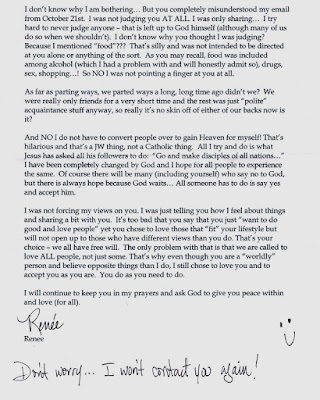 I don't know why I am bothering... But you completely misunderstood my email
from October 21st. I was not judging you AT ALL. I was only sharing... I try
hard to never judge anyone – that is left up to God himself (although many of us
do so when we shouldn't). I don't know why you thought I was judging?
Because I mentioned "food"??? That's silly and was not intended to be directed
at you alone or anything of the sort. As you may recall, food was included
among alcohol (which I had a problem with and will honestly admit so), drugs,
sex, shopping...! So NO I was not pointing a finger at you at all.
As far as parting ways, we parted ways a long, long time ago didn't we? We
were really only friends for a very short time and the rest was just "polite"
acquaintance stuff anyway, so really it's no skin off of either of our backs now is
it?
And NO I do not to convert people over to gain Heaven for myself! That's
hilarious and that's a JW thing, not a Catholic thing. All I try and do is what
Jesus has asked all his followers to do: "Go and make disciples of all nations..."
I have been completely changed by God and I hope for all people to experience
the same. Of course there will be many (including yourself) who say no to God,
but there is always hope because God waits... All someone has to do is say yes
and accept him.
I was not forcing my views on you. I was just telling you how I feel about things
and sharing a bit with you. It's too bad that you say that you just "want to do
good and love people" yet you chose to love those that "fit" your lifestyle but
will not open up to those who have different views than you do. That's your
choice – we all have free will. The only problem with that is that we are called to
love ALL people, not just some. That's why even though you are a "worldly"
person and believe opposite things than I do, I still chose to love you and to
accept you as you are. You do as you need to do.
I will continue to keep you in my prayers and ask God to give you peace within
and love (for all).
Renée
Renee
Don't worry... I won't contact you again!